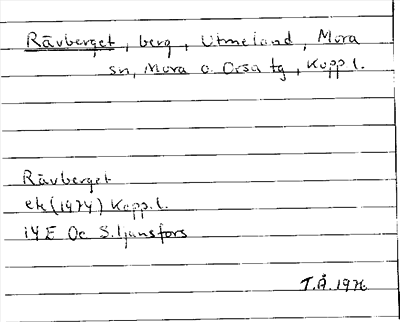 Rävberget, berg, Utmeland, Mora
sn, Mora o. Orsa tg, Kopp l.
Rävberget
ek (1974) Kopp. l.
14 E Oc S. Ljunsfors
T.Å. 1976